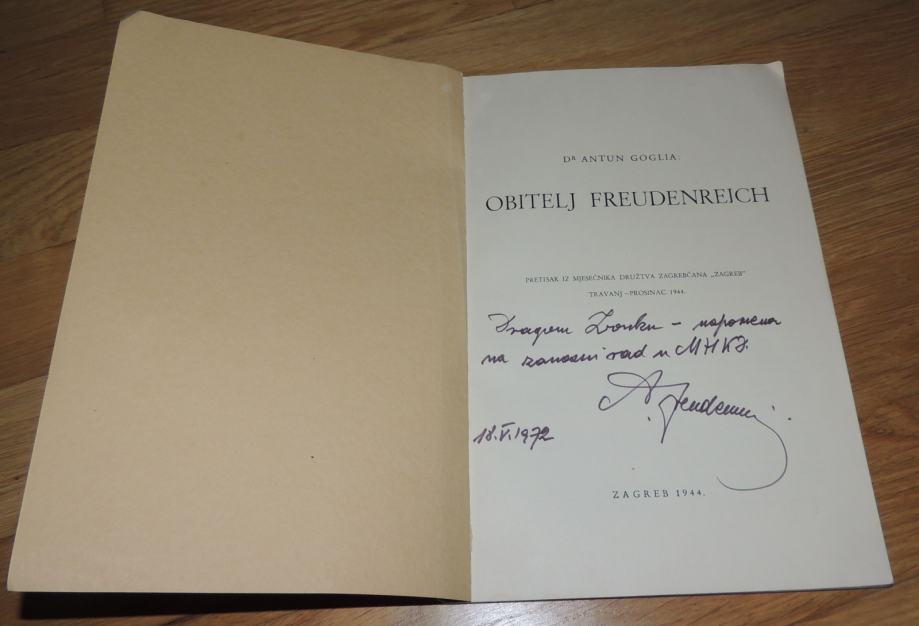 Dʀ ANTUN GOGLIA:
OBITELJ FREUDENREICH
PRETISAK IZ MJESEČNIKA DRUŽTVA ZAGREBČANA „ZAGREB"
TRAVANJ – PROSINAC 1944.
Dragom Zvonku –
na zanosni rad u
18.V.1972
ZAGREB 1944.